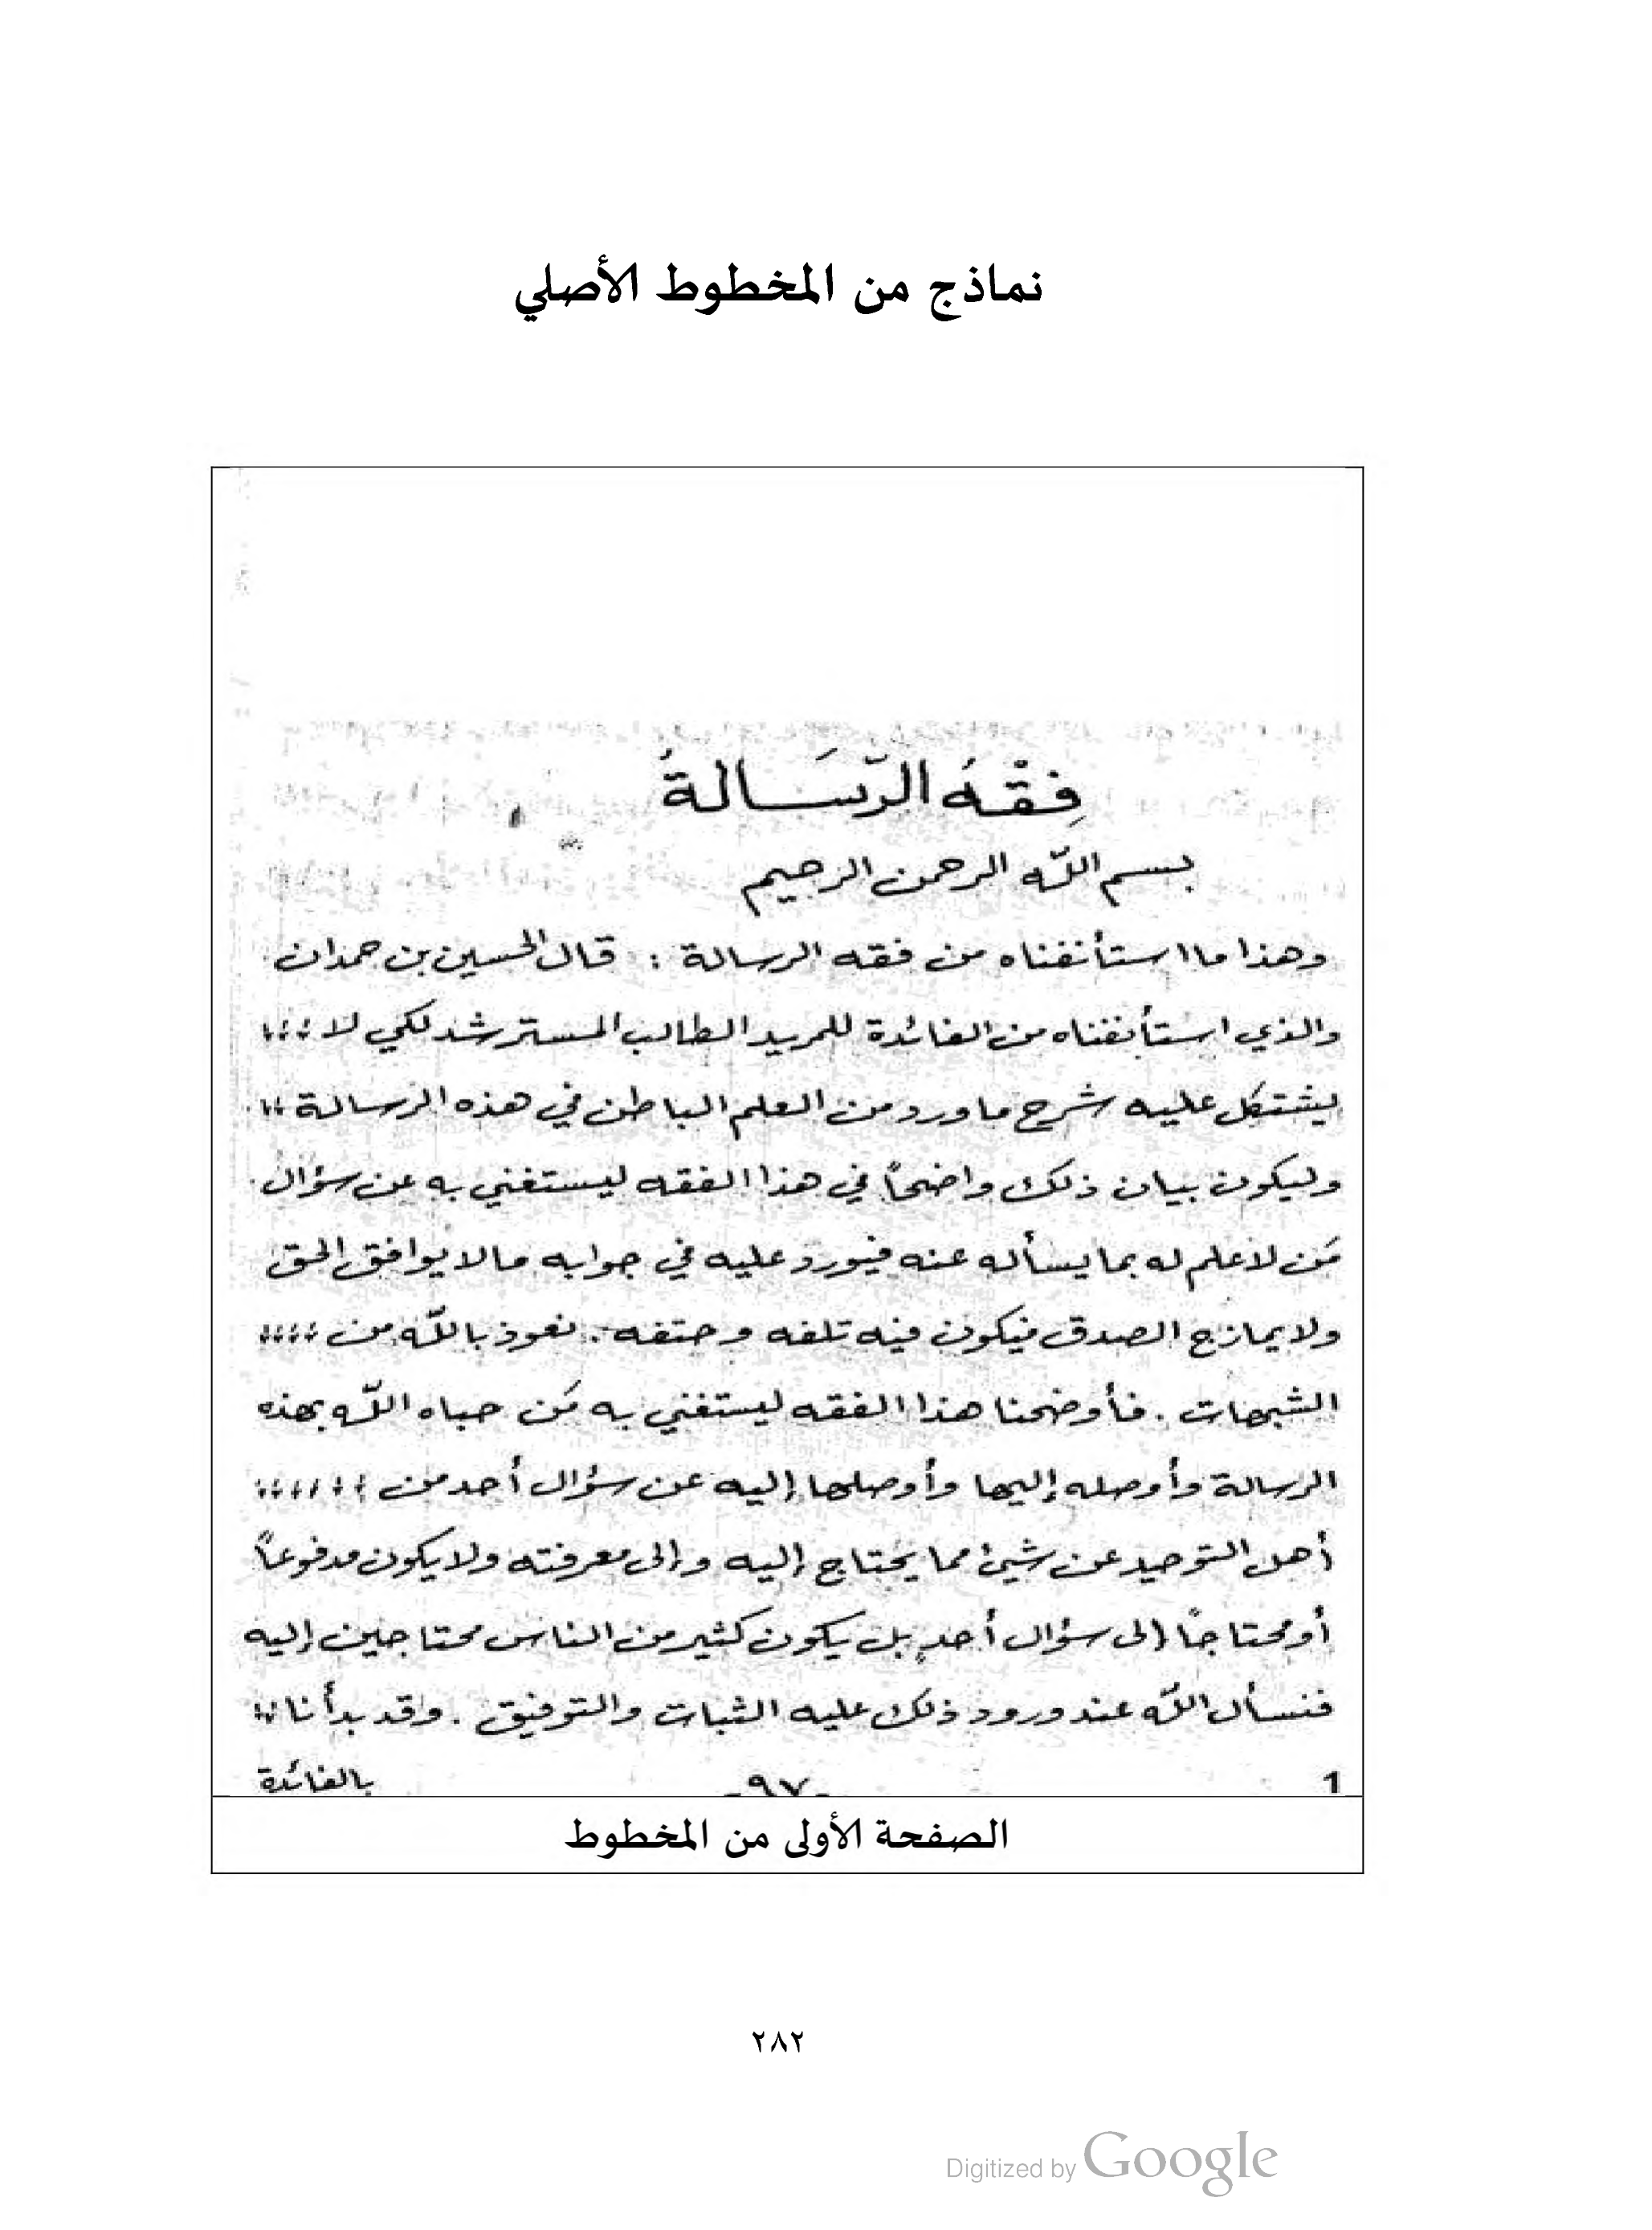 نماذج من المخطوط الأصلي
فِقْهُ الرّسَالةُ
بسم اللّه الرحمن الرحيم
وهذا ما استأنفناه من فقه الرسالة : قال الحسين بن حمدان
والذي استأنفناه من الفائدة للمريد الطالب المسترشد لكي لا ؛؛؛
يشتكل عليه شرح ما ورد من العلم الباطن في هذه الرسالة ؛؛
وليكون بيان ذلك واضحاً في هذا الفقه ليستغني به عن سؤال
مَن لا علم له بما يسأله عنه فيورد عليه في جوابه ما لا يوافق الحق
ولا يمازج الصدق فيكون فيه تلفه وحتفه . نعوذ باللّه من ؛؛؛؛
الشبهات . فأوضحنا هذا الفقه ليستغني به مَن حباه اللّه بهذه
الرسالة وأوصله إليها وأوصلها إليه عن سؤال أحد من ؛؛؛؛؛؛
أهل التوحيد عن شيئ مما يحتاج إليه وإلى معرفته ولا يكون مدفوعاً
أو محتاجاً إلى سؤال أحدٍ بل يكون كثير من الناس محتاجين إليه
فنسأل اللّه عند ورود ذلك عليه الثبات والتوفيق . وقد بدأنا ؛؛
بالفائدة
1 -٩٧-
الصفحة الأولى من المخطوط
٢٨٢
Digitized by Google